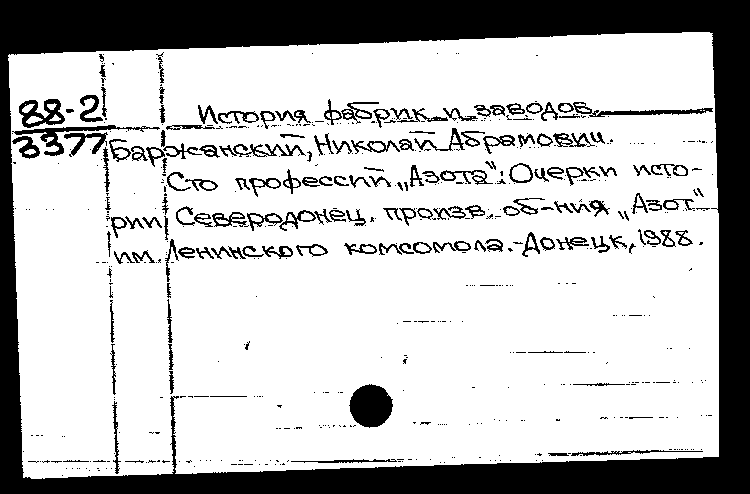 88-2 История фабрик и заводов.
3377 Баржанский, Николай Абрамович.
Сто профессий „Азота": Очерки исто-
рии Северодонец. произв. об-ния „Азот"
им. Ленинского комсомола.-Донецк, 1988.